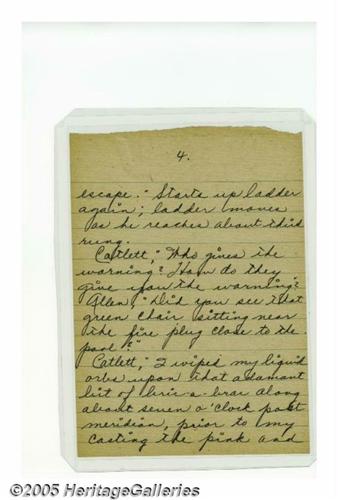 4.
escape." Starts up ladder
again; ladder moves
as he reaches about third
rung.
Catlett, "Who gives the
warning? How do they
give you the warning?"
Allen, "Did you see that
green chair sitting near
the fire plug close to the
pool?"
Catlett, "I wiped my liquid
orbs upon that adamant
bit of bric-a-brac along
about seven o'clock post
meridian, prior to my
casting the pink and
©2005 HeritageGalleries